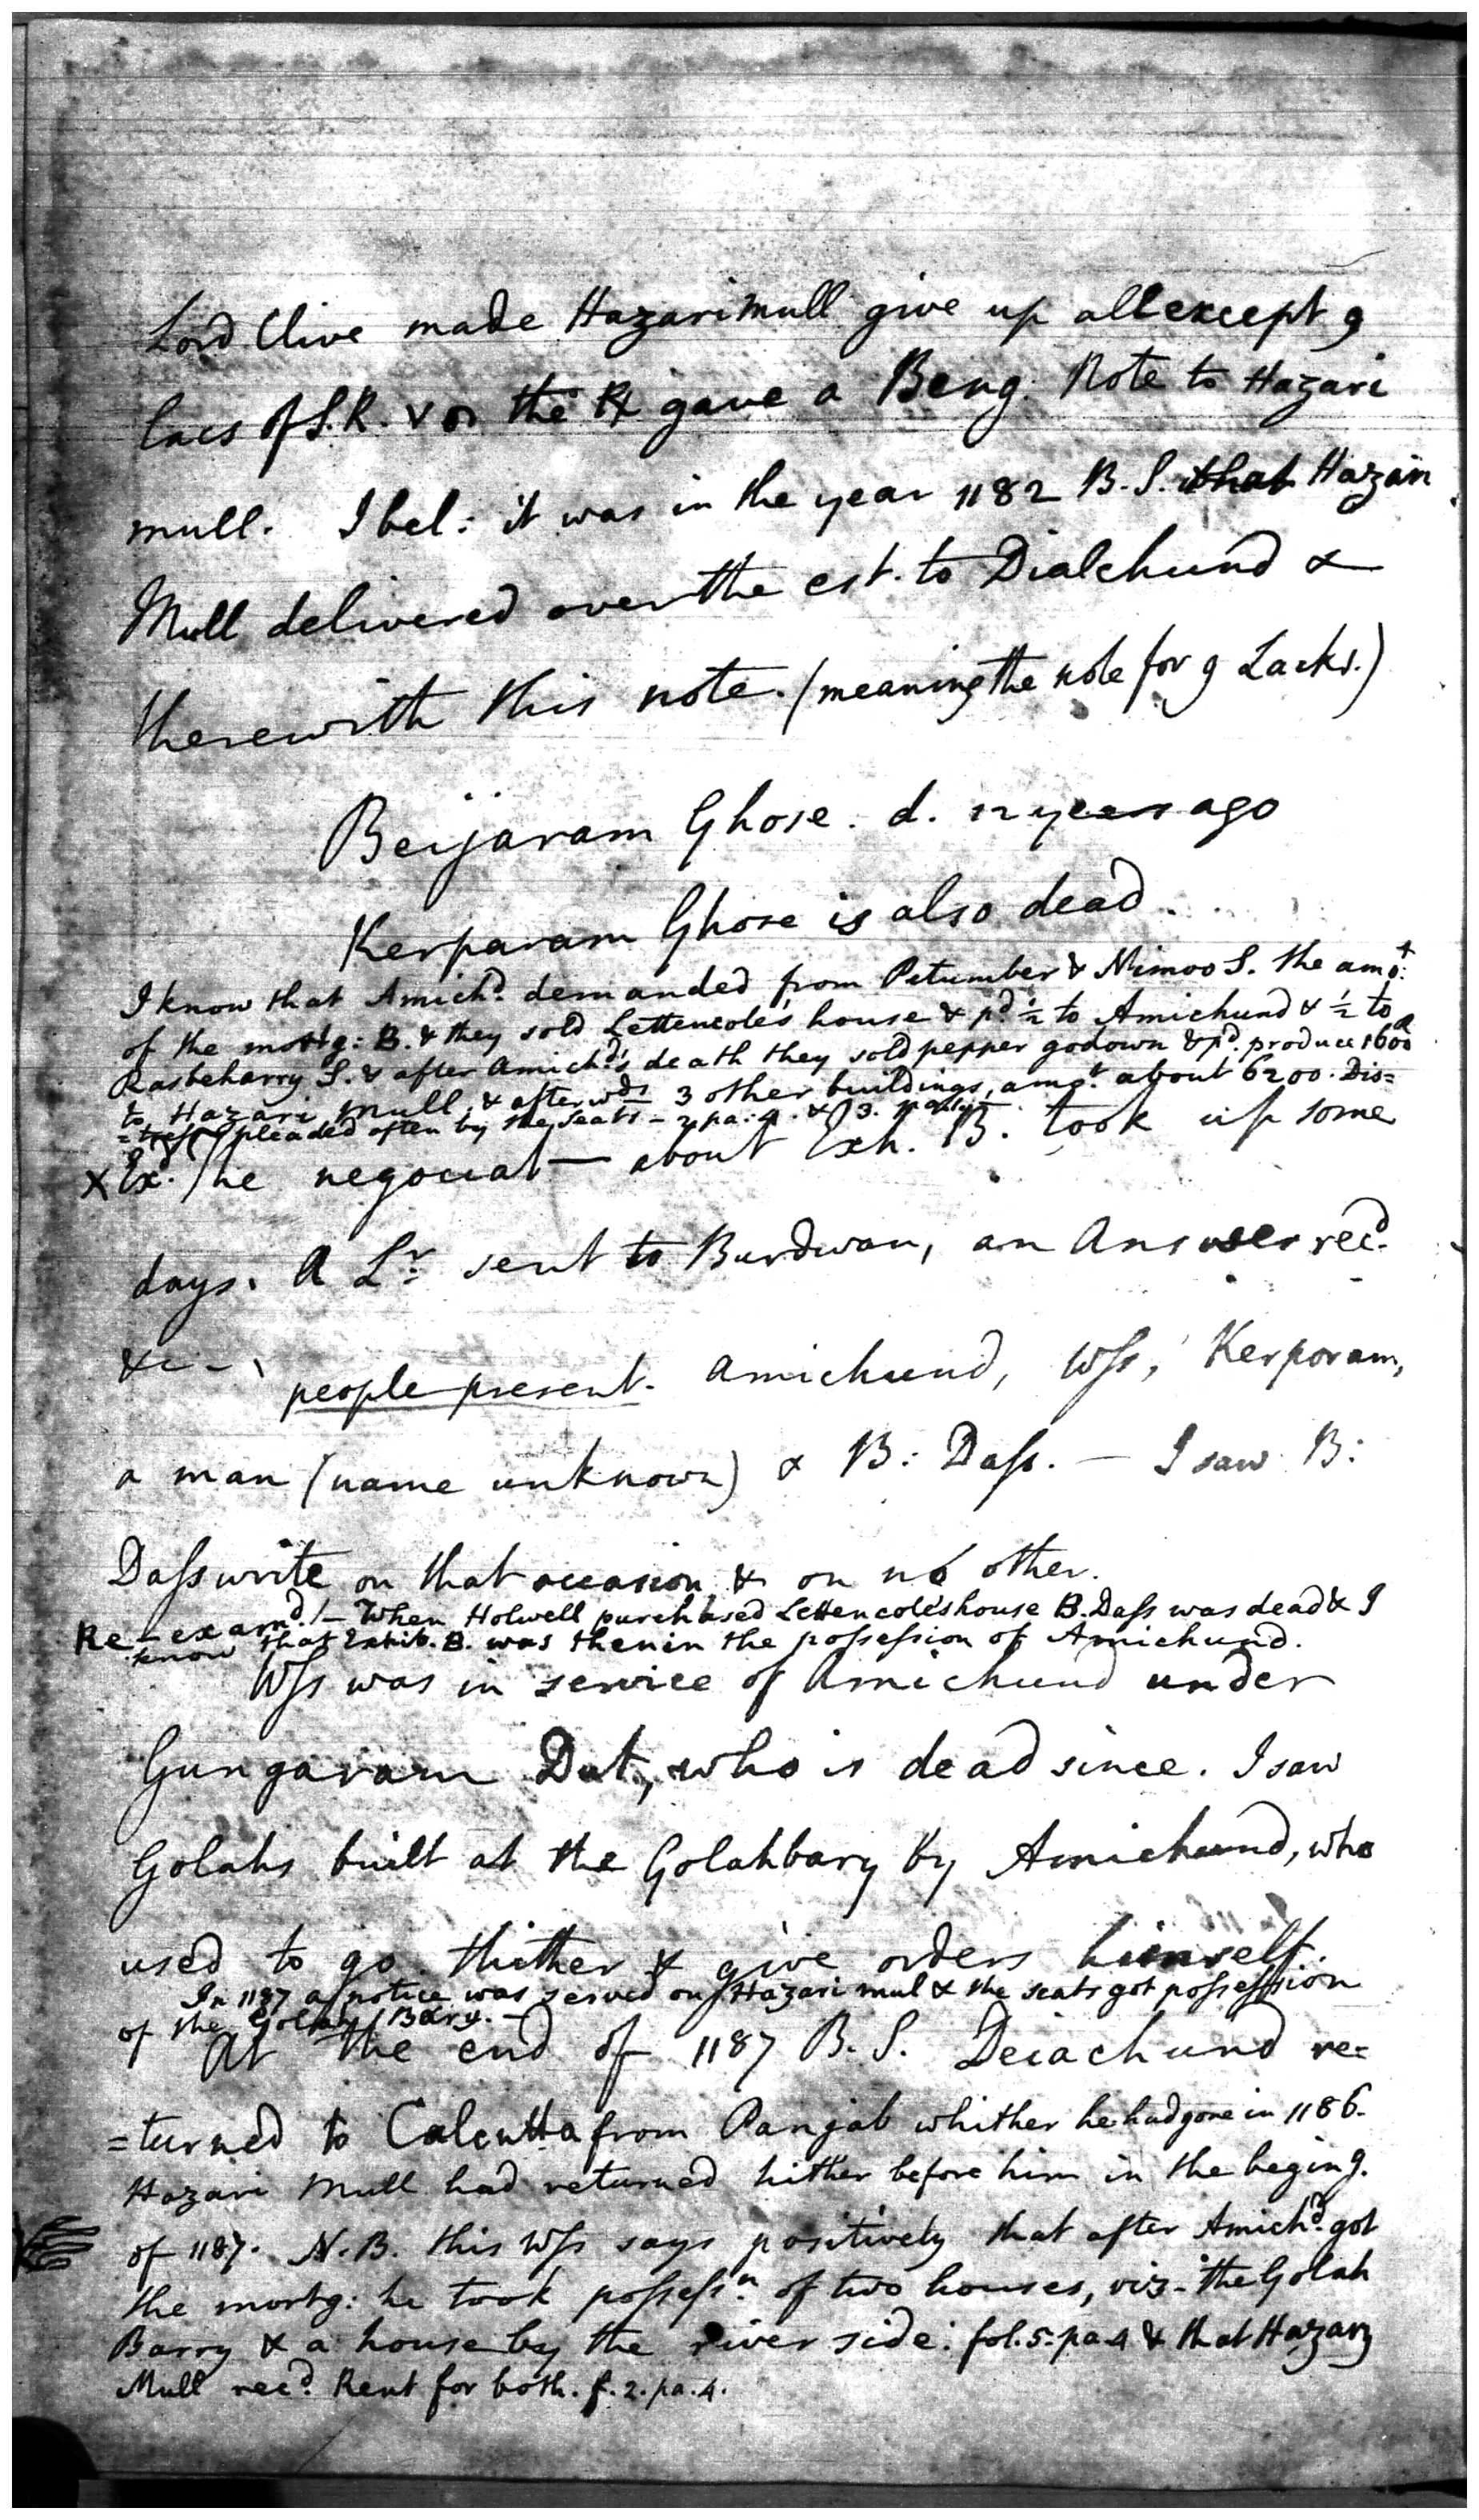 Lord Clive made Hazarimull give up all except 9
lacs of S.R. & on the gave a Beng. Note to Hazari
mull. I bel: it was in the year 1182 B.S. that Hazari
Mull delivered over the est. to Dialchund &
therewith this note. (meaning the note for 9 Lacks.)
Beijaram Ghose. d. 12 years ago
Kerparam Ghose is also dead
I know that Amichd. demanded from Petumber & Nimoo S. the amot.
of the mortg: B. & they sold Lettencole's house & pd. ½ to Amichund & ½ to
Rasbeharry S. & after Amichd's death they sold pepper godown & pd. produce 1600
to Hazari Mull, & afterwds 3 other buildings, amot. about 6200. Dis=
=tress pleaded often by the Seats - 2 pa: 4. & 3.
X Exd. The negociat— about Exh. B. took up some
days. A Lr. sent to Burdwan, an Answer recd.
&c - . people present. Amichund, Wss, Kerporam,
a man (name unknown) & B: Dass. — I saw B:
Dass write on that occasion & on no other.
Re-examd. /- When Holwell purchased Lettencole's house B. Dass was dead & I
know that Exhib. B. was then in the possession of Amichund.
Wss was in service of Amichund under
Gungaram Dut, who is dead since. I saw
Golahs built at the Golahbary by Amichund, who
used to go thither & give orders himself.
In 1187 a notice was served on Hazari mul & the seats got possession
of the Golah Bary. -
At the end of 1187 B.S. Deiachund re=
=turned to Calcutta from Panjab whither he had gone in 1186.
Hazari Mull had returned hither before him in the beging.
of 1187. N.B. this Wss says positively that after Amichd. got
the mortg: he took possessn. of two houses, viz- the Golah
Barry & a house by the river side: fol. 5. pa 4 & that Hazary
Mull recd. Rent for both. f. 2. pa. 4.